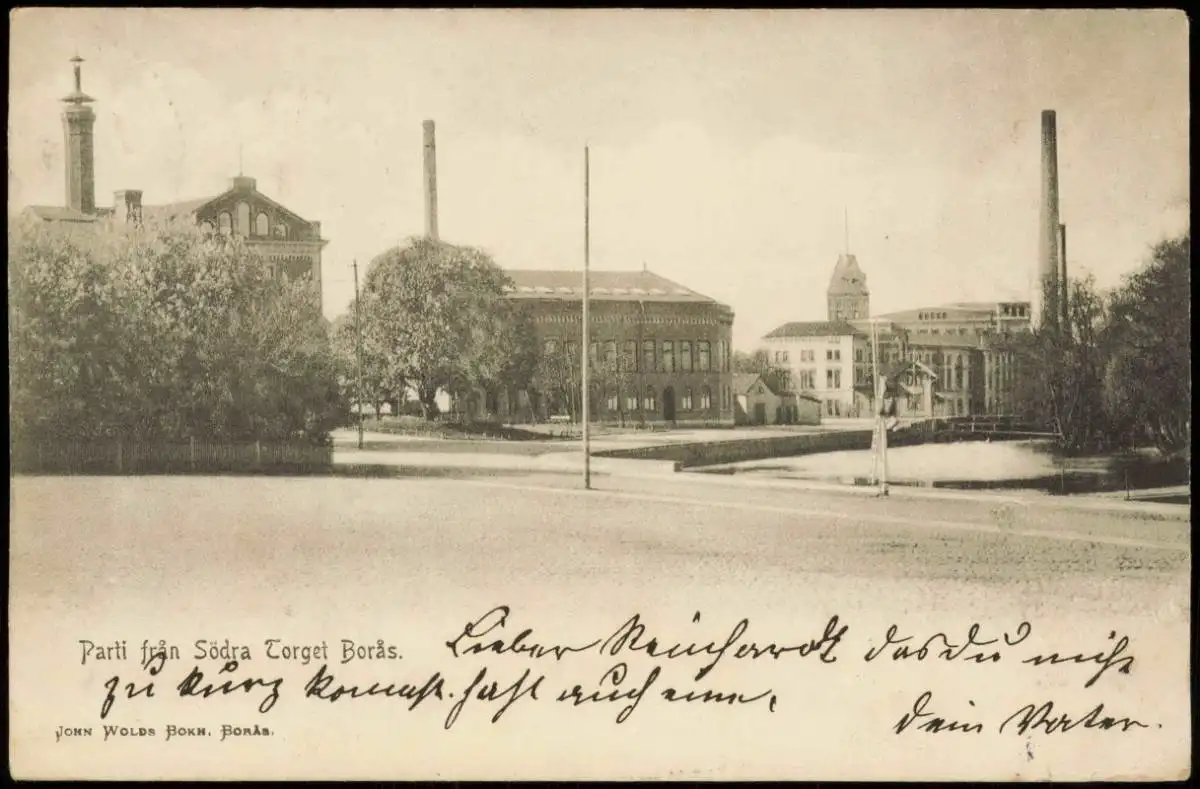 Parti från Södra Torget Borås.
Lieber Reinhardt das Du nicht
zu kurz kommst. hast auch eine,
John Wolds Bokh. Borås.
Dein Vater.